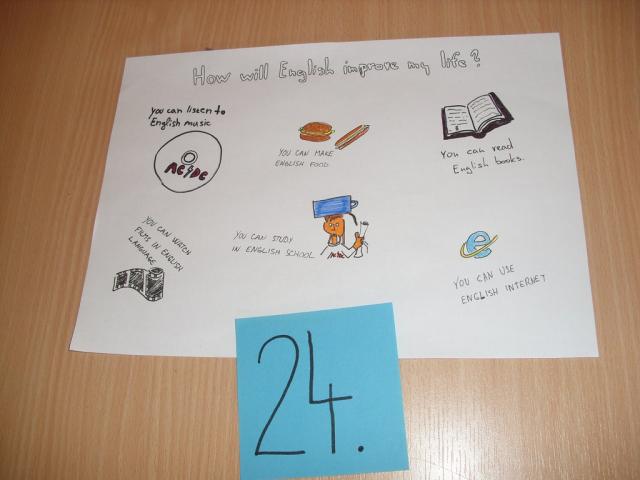 How will English improve my life?
you can listen to
English music
AC/DC
YOU CAN MAKE
ENGLISH FOOD.
You can read
English books.
YOU CAN WATCH
FILMS IN ENGLISH
LANGUAGE
YOU CAN STUDY
IN ENGLISH SCHOOL
e
YOU CAN USE
ENGLISH INTERNET
24.